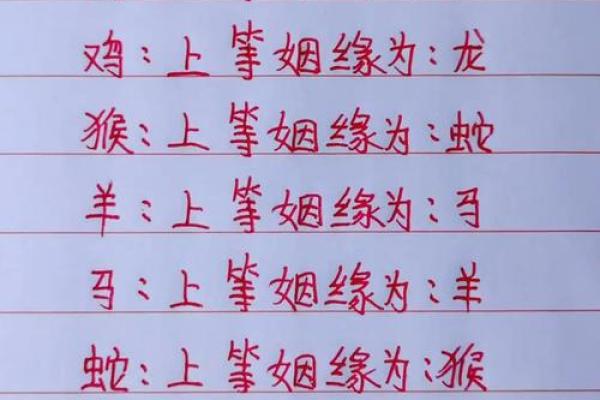 鸡:上等姻缘为:龙
猴:上等姻缘为:蛇
羊:上等姻缘为:马
马:上等姻缘为:羊
蛇:上等姻缘为:猴